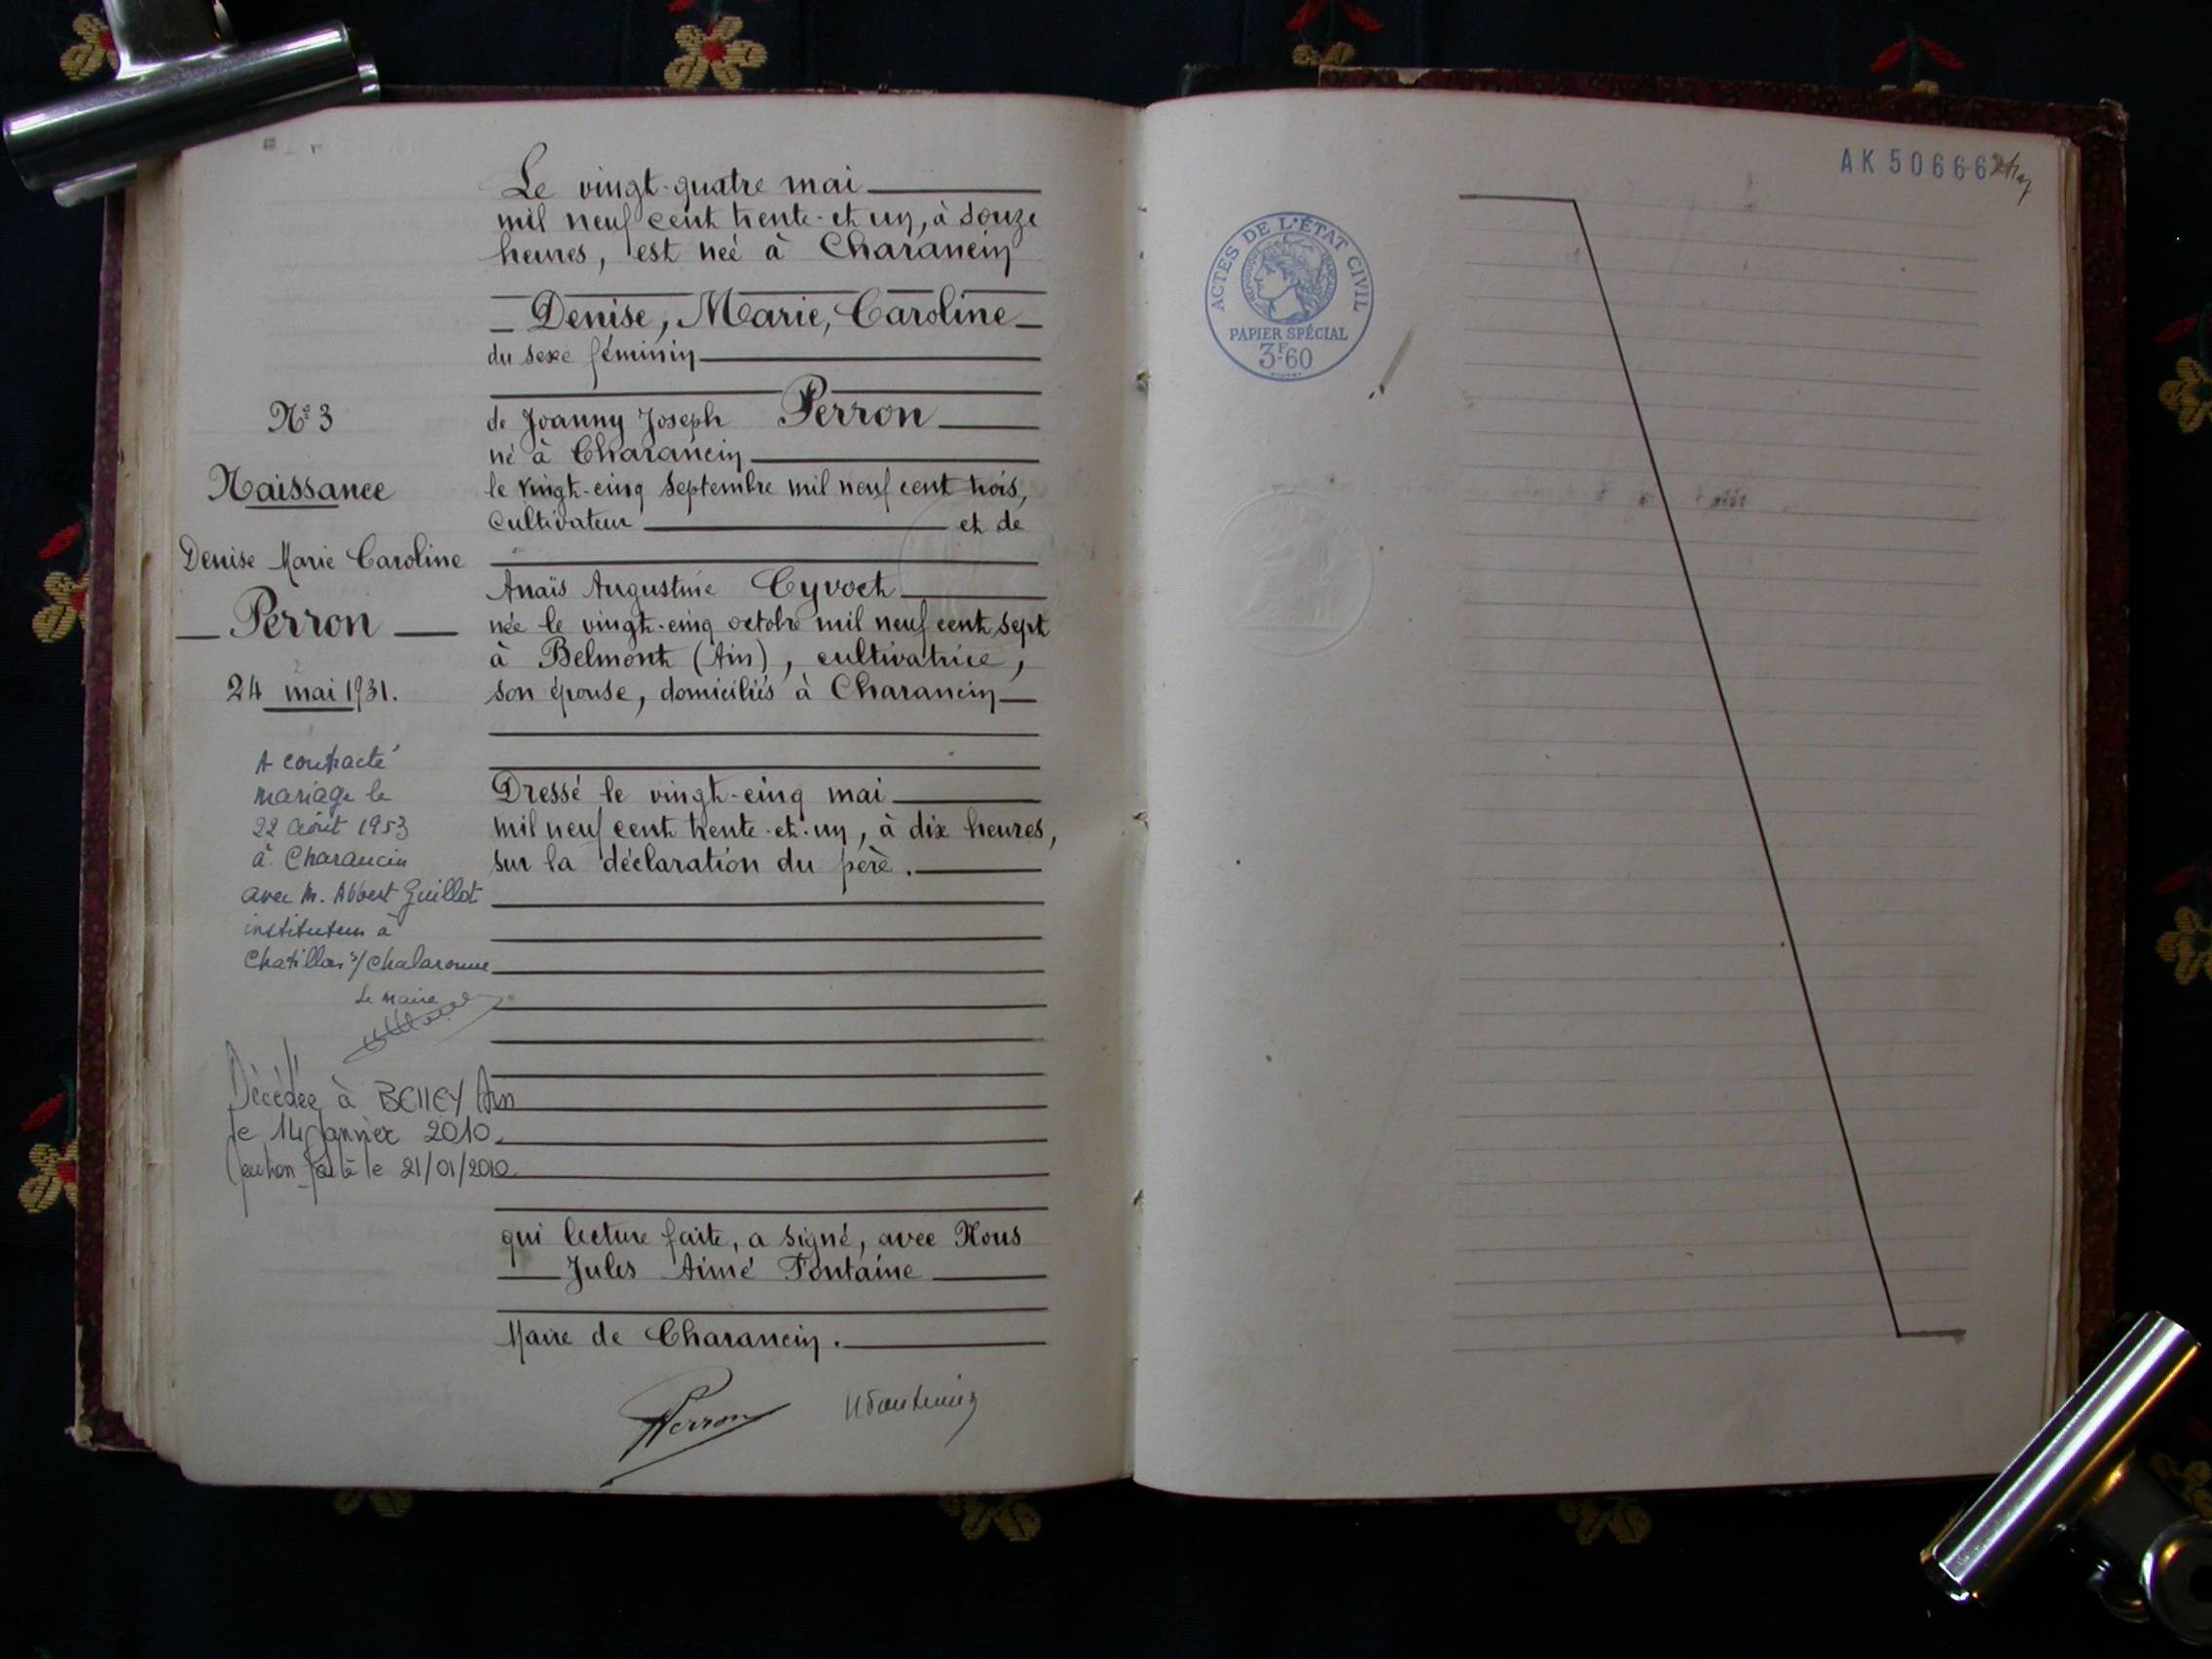 Le vingt-quatre mai
mil neuf cent trente-et un, à douze
heures, est née à Charancin
Denise, Marie, Caroline
du sexe féminin
N° 3
de Joanny Joseph Perron
né à Charancin
Naissance
le vingt-cinq septembre mil neuf cent trois,
cultivateur et de
Denise Marie Caroline
Anaïs Augustine Cyvoct
Perron
née le vingt-cinq octobre mil neuf cent sept
à Belmont (Ain), cultivatrice,
24 mai 1931.
son épouse, domiciliés à Charancin
A contracté
mariage le
22 Août 1953
à Charancin
avec M. Albert Guillot
instituteur à
Chatillon s/ Chalaronne
Le Maire
Dressé le vingt-cinq mai
mil neuf cent trente-et-un, à dix heures,
sur la déclaration du père.
Décédée à BELLEY Ain
le 14 Janvier 2010.
faite le 21/01/2010
qui lecture faite, a signé, avec Nous
Jules Aimé Fontaine
Maire de Charancin.
Perron
AK 50666
ACTES DE L'ÉTAT CIVIL
RÉPUBLIQUE FRANÇAISE
PAPIER SPÉCIAL
3F60